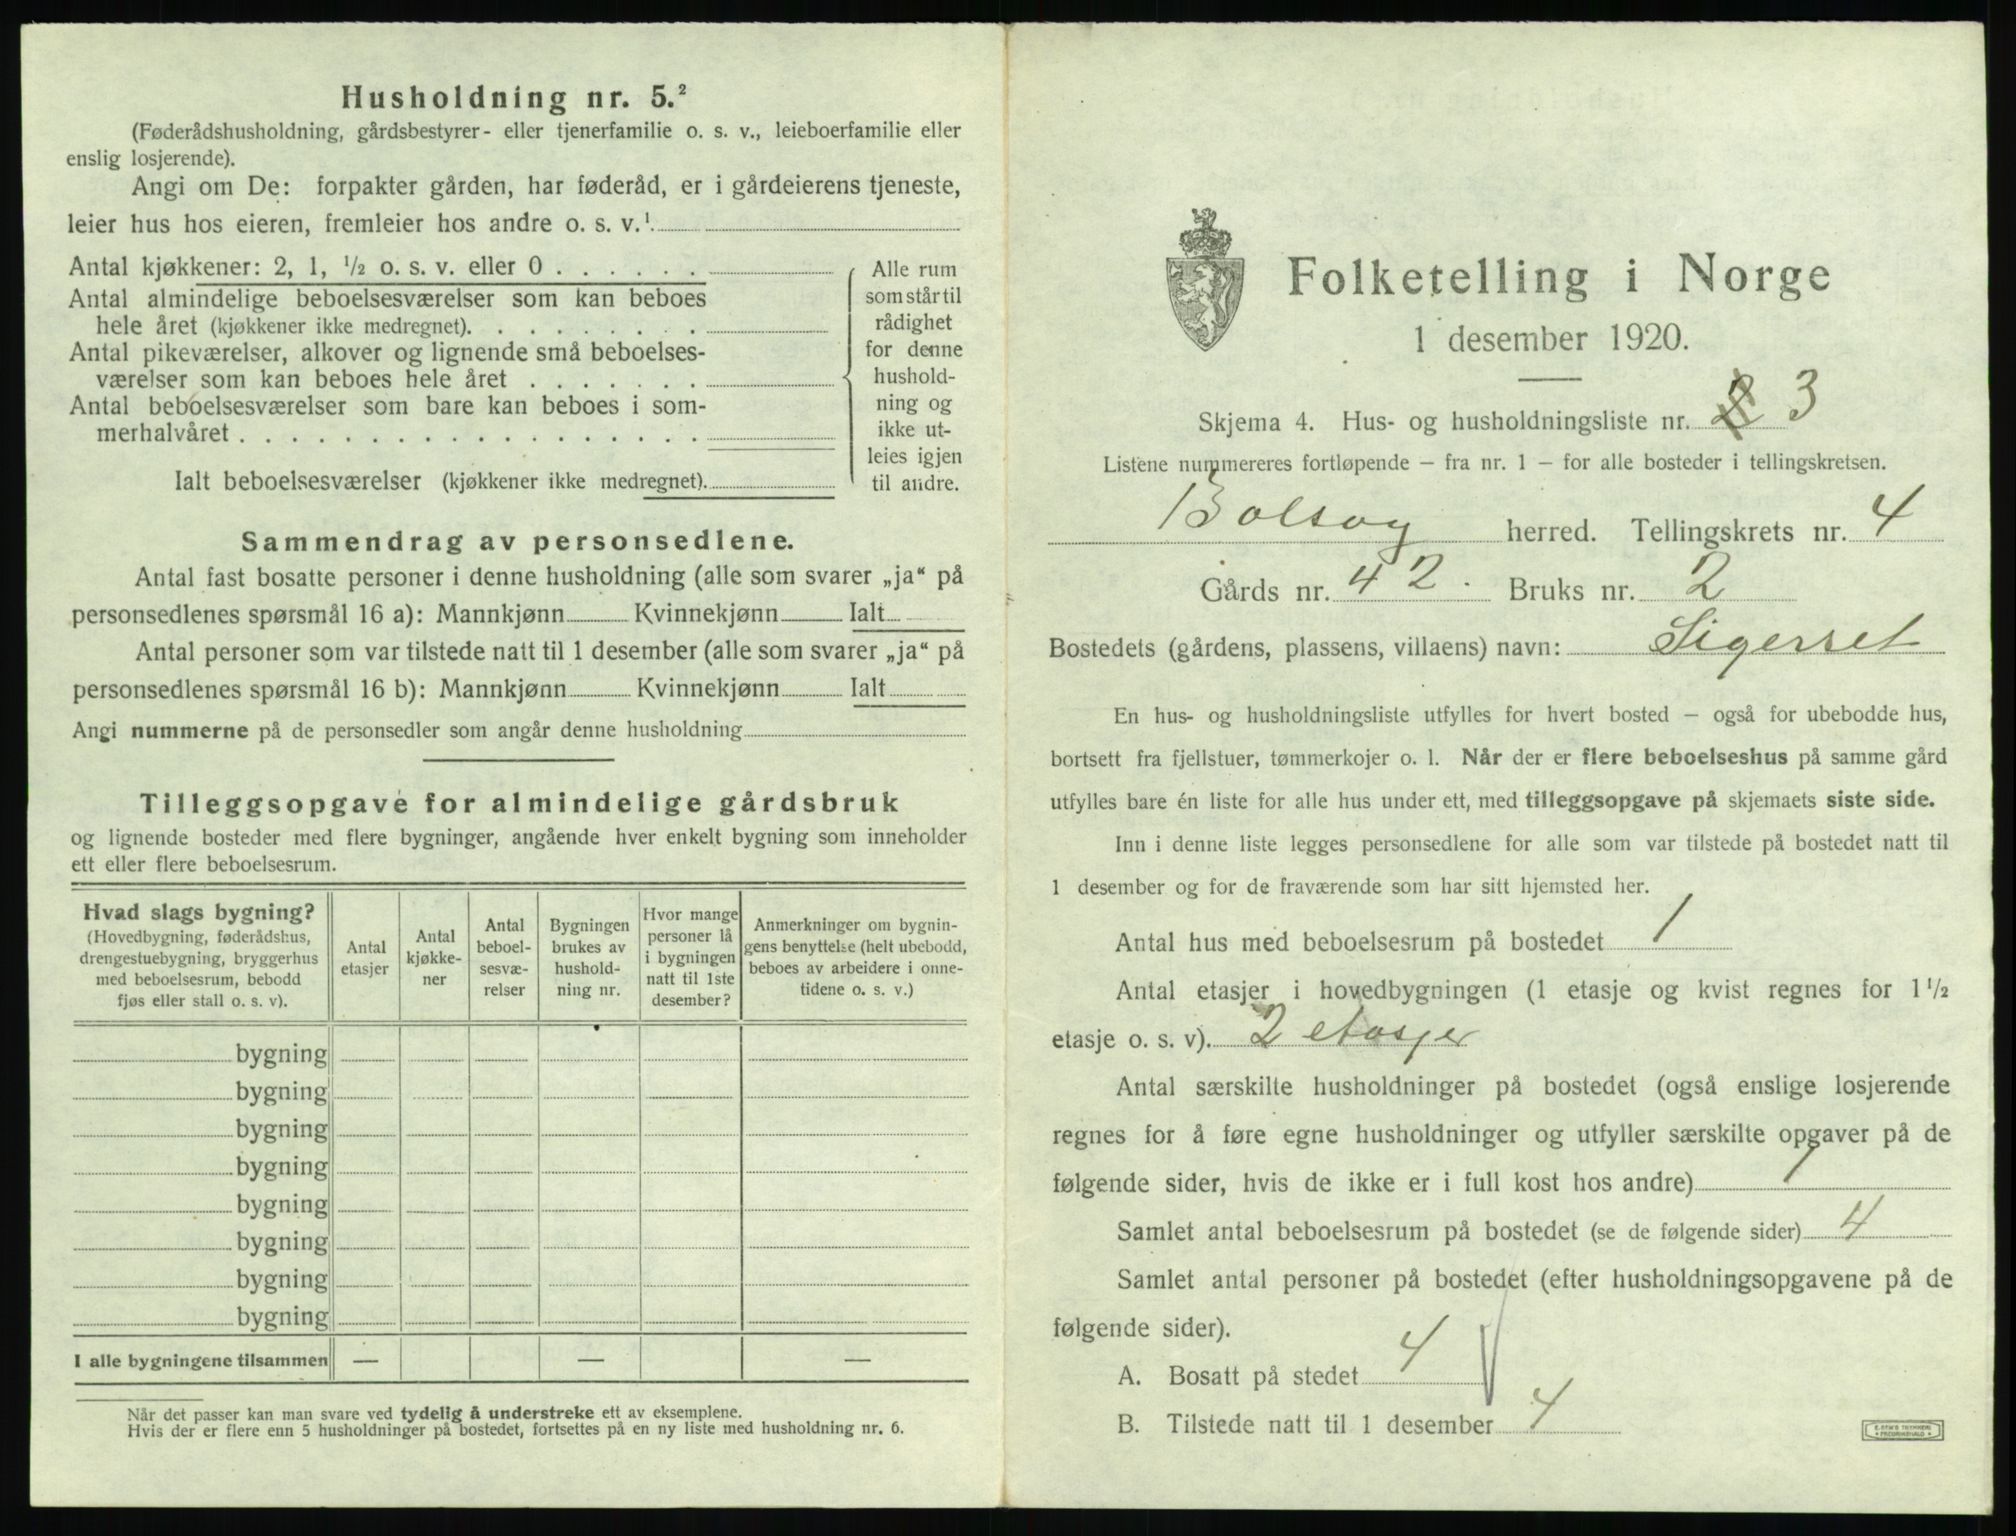 Husholdning nr. 5.²
(Føderådshusholdning, gårdsbestyrer- eller tjenerfamilie o. s. v., leieboerfamilie eller
enslig losjerende).
Angi om De: forpakter gården, har føderåd, er i gårdeierens tjeneste,
leier hus hos eieren, fremleier hos andre o. s. v.¹
Antal kjøkkener: 2, 1, ½ o. s. v. eller 0
Antal almindelige beboelsesværelser som kan beboes
hele året (kjøkkener ikke medregnet).
Antal pikeværelser, alkover og lignende små beboelses-
værelser som kan beboes hele året
Antal beboelsesværelser som bare kan beboes i som-
merhalvåret
Ialt beboelsesværelser (kjøkkener ikke medregnet).
Alle rum
som står til
rådighet
for denne
hushold-
ning og
ikke ut-
leies igjen
til andre.
Sammendrag av personsedlene.
Antal fast bosatte personer i denne husholdning (alle som svarer „ja“ på
personsedlenes spørsmål 16 a): Mannkjønn Kvinnekjønn Ialt
Antal personer som var tilstede natt til 1 desember (alle som svarer „ja“ på
personsedlenes spørsmål 16 b): Mannkjønn Kvinnekjønn Ialt
Angi nummerne på de personsedler som angår denne husholdning
Tilleggsopgave for almindelige gårdsbruk
og lignende bosteder med flere bygninger, angående hver enkelt bygning som inneholder
ett eller flere beboelsesrum.
Hvad slags bygning?
(Hovedbygning, føderådshus,
drengestuebygning, bryggerhus
med beboelsesrum, bebodd
fjøs eller stall o. s. v).
Antal
etasjer
Antal
kjøkke-
ner
Antal
beboel-
sesvæ-
relser
Bygningen
brukes av
hushold-
ning nr.
Hvor mange
personer lå
i bygningen
natt til 1ste
desember?
Anmerkninger om bygnin-
gens benyttelse (helt ubebodd,
beboes av arbeidere i onne-
tidene o. s. v.)
bygning
bygning
bygning
bygning
bygning
bygning
bygning
bygning
I alle bygningene tilsammen — — —
Når det passer kan man svare ved tydelig å understreke ett av eksemplene.
Hvis der er flere enn 5 husholdninger på bostedet, fortsettes på en ny liste med husholdning nr. 6.
Folketelling i Norge
1 desember 1920.
Skjema 4. Hus- og husholdningsliste nr. 2 3
Listene nummereres fortløpende — fra nr. 1 — for alle bosteder i tellingskretsen.
Bolsøy herred. Tellingskrets nr. 4
Gårds nr. 42. Bruks nr. 2
Bostedets (gårdens, plassens, villaens) navn: Sigerset
En hus- og husholdningsliste utfylles for hvert bosted — også for ubebodde hus,
bortsett fra fjellstuer, tømmerkojer o. l. Når der er flere beboelseshus på samme gård
utfylles bare én liste for alle hus under ett, med tilleggsopgave på skjemaets siste side.
Inn i denne liste legges personsedlene for alle som var tilstede på bostedet natt til
1 desember og for de fraværende som har sitt hjemsted her.
Antal hus med beboelsesrum på bostedet 1
Antal etasjer i hovedbygningen (1 etasje og kvist regnes for 1 ½
etasje o. s. v). 2 etasjer
Antal særskilte husholdninger på bostedet (også enslige losjerende
regnes for å føre egne husholdninger og utfyller særskilte opgaver på de
følgende sider, hvis de ikke er i full kost hos andre) 1
Samlet antal beboelsesrum på bostedet (se de følgende sider) 4
Samlet antal personer på bostedet (efter husholdningsopgavene på de
følgende sider).
A. Bosatt på stedet 4
B. Tilstede natt til 1 desember 4